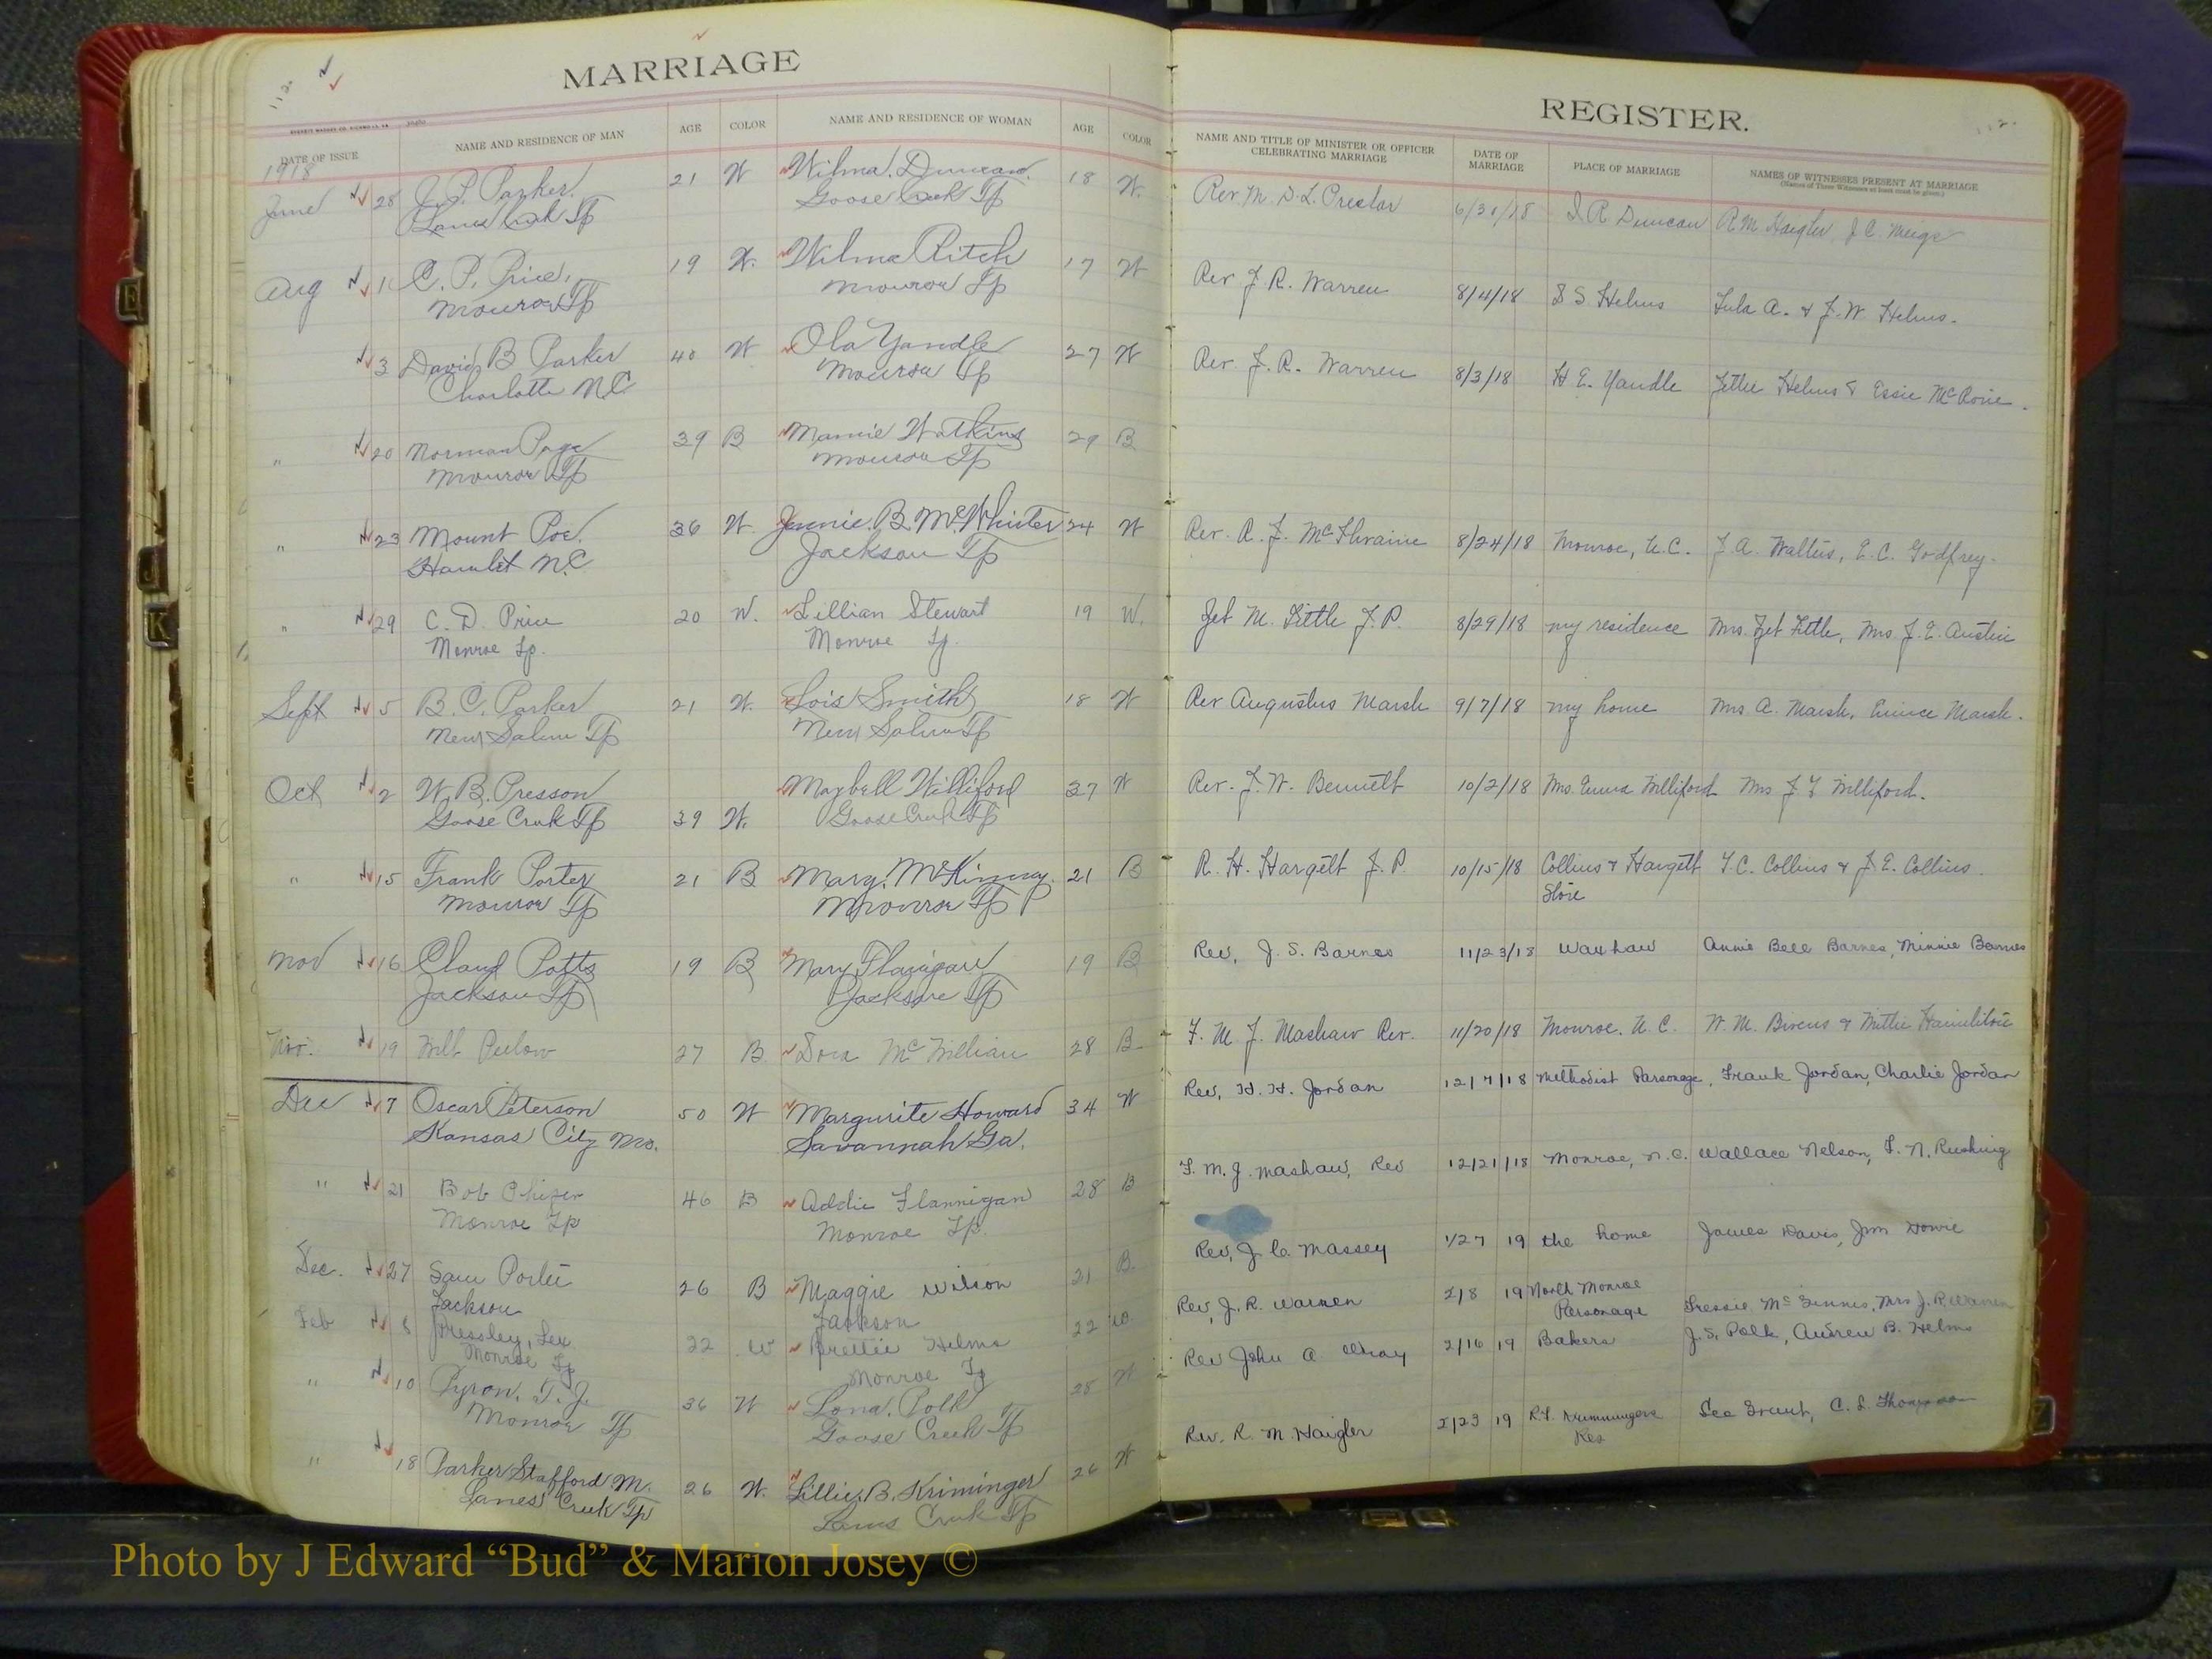 MARRIAGE
112
DATE OF ISSUE
NAME AND RESIDENCE OF MAN
AGE
COLOR
NAME AND RESIDENCE OF WOMAN
AGE
COLOR
1918
June 28 J. P. Parker 21 W Wilma Duncan 18 W.
Lanes Creek Tp Goose Creek Tp
Aug 1 C. P. Price 19 W. Wilma Ritch 17 W
Monroe Tp Monroe Tp
3 David B Parker 40 W Ola Yandle 27 W
Charlotte N.C. Monroe Tp
" 20 Norman Page 39 B Mamie Watkins 29 B
Monroe Tp Monroe Tp
" 23 Mount Poe 36 W. Jennie B. McWhirter 24 W
Hamlet N.C. Jackson Tp
" 29 C. D. Price 20 W. Lillian Stewart 19 W.
Monroe Tp. Monroe Tp.
Sept 5 B. C. Parker 21 W. Lois Smith 18 W
New Salem Tp New Salem Tp
Oct 2 W. B. Presson Maybell Williford 37 W
Goose Creek Tp 39 W. Goose Creek Tp
" 15 Frank Porter 21 B Mary McKinney 21 B
Monroe Tp Monroe Tp
Nov 16 Claud Potts 19 B Mary Flanigan 19 B
Jackson Tp Jackson Tp
Nov. 19 Will 27 B. Dora McWillian 28 B
Dec 7 Oscar Peterson 50 W Margurite Howard 34 W
Kansas City Mo. Savannah Ga.
" 21 Bob 46 B Addie Flannigan 28 B
Monroe Tp Monroe Tp.
Dec. 27 Sam Porter 26 B Maggie Wilson 21 B
Jackson Jackson
Feb 8 Pressley, Lex 22 W Brettie Helms 22 W
Monroe Tp Monroe Tp
" 10 Pyron, T. J. 36 W Lona Polk 28 W
Monroe Tp Goose Creek Tp
" 18 Parker Stafford M. 26 W. Lillie B. Kriminger 26 W
Lanes Creek Tp Lanes Creek Tp
REGISTER.
112
NAME AND TITLE OF MINISTER OR OFFICER
CELEBRATING MARRIAGE
DATE OF
MARRIAGE
PLACE OF MARRIAGE
NAMES OF WITNESSES PRESENT AT MARRIAGE
(Names of Three Witnesses at least must be given.)
Rev. M. D. L. Preslar J R Duncan R. M. Haigler J. C. Meigs
Rev J. R. Warren 8/4/18 S S Helms Lula A. & J. W. Helms.
Rev. J. R. Warren 8/3/18 H E. Yandle Helms & Essie McRorie.
Rev. A. J. McIlwaine 8/24/18 Monroe, N.C. J. A. Walters, E. C. Godfrey.
Zeb M. Little J. P. 8/29/18 my residence Mrs. Zeb Little, Mrs. J. E. Austin
Rev Augustus Marsh 9/7/18 my home Mrs A. Marsh, Eunice Marsh.
Rev. J. W. Bennett 10/2/18 Mrs. Emma Williford Mrs J Y Williford.
R. H. Hargett J. P. 10/15/18 Collins & Hargett T. C. Collins & J. E. Collins.
Store
Rev. J. S. Barnes 11/23/18 Waxhaw Annie Bell Barnes, Minnie Barnes
F. M. J. Mashaw Rev. 11/20/18 Monroe, N. C. W. M. Bivens & Mittie Hamilton
Rev. H. H. Jordan 12/7/18 Methodist Parsonage, Frank Jordan, Charlie Jordan
F. M. J. Mashaw, Rev 12/21/18 Monroe, N.C. Wallace Nelson, F. N. Rushing
Rev, J. C. Massey 1/27 19 the home James Davis, Jim Howie
Rev, J. R. Warren 2/8 19 North Monroe
Parsonage Mrs J. R. Warren
Rev John A Wray 2/16 19 Bakers J. S. Polk, Andrew B. Helms
Rev. R. M. Haigler 2/23 19 Lee Grant, C. L. Thompson
Res
E
J
K
Z
Photo by J Edward “Bud” & Marion Josey ©